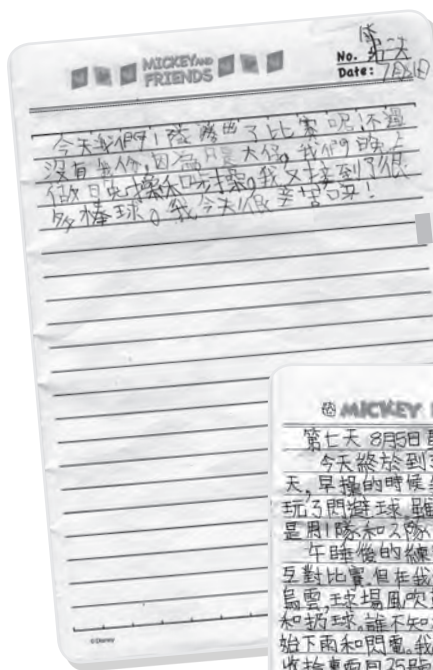 MICKEY AND
FRIENDS
No. 第一天
Date: 7月31日
今天我們1隊勝出了比賽呢!不過
沒有我份,因為只是大仔。我們晚上
做日免操和晚操。我又接到了很
多棒球。我今天很辛苦唷!
©Disney
MICKEY
第七天 8月5日
今天終於到
天,早操的時候
玩了閃避球,雖
是用1隊和2隊
午睡後的練
互對比賽,但在我
烏雲,球場風吹
和扔球。誰不知
始下雨和閃電。我
收拾東西回25號